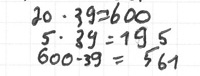 20 · 39=600
5 · 39 = 195
600-39 = 561